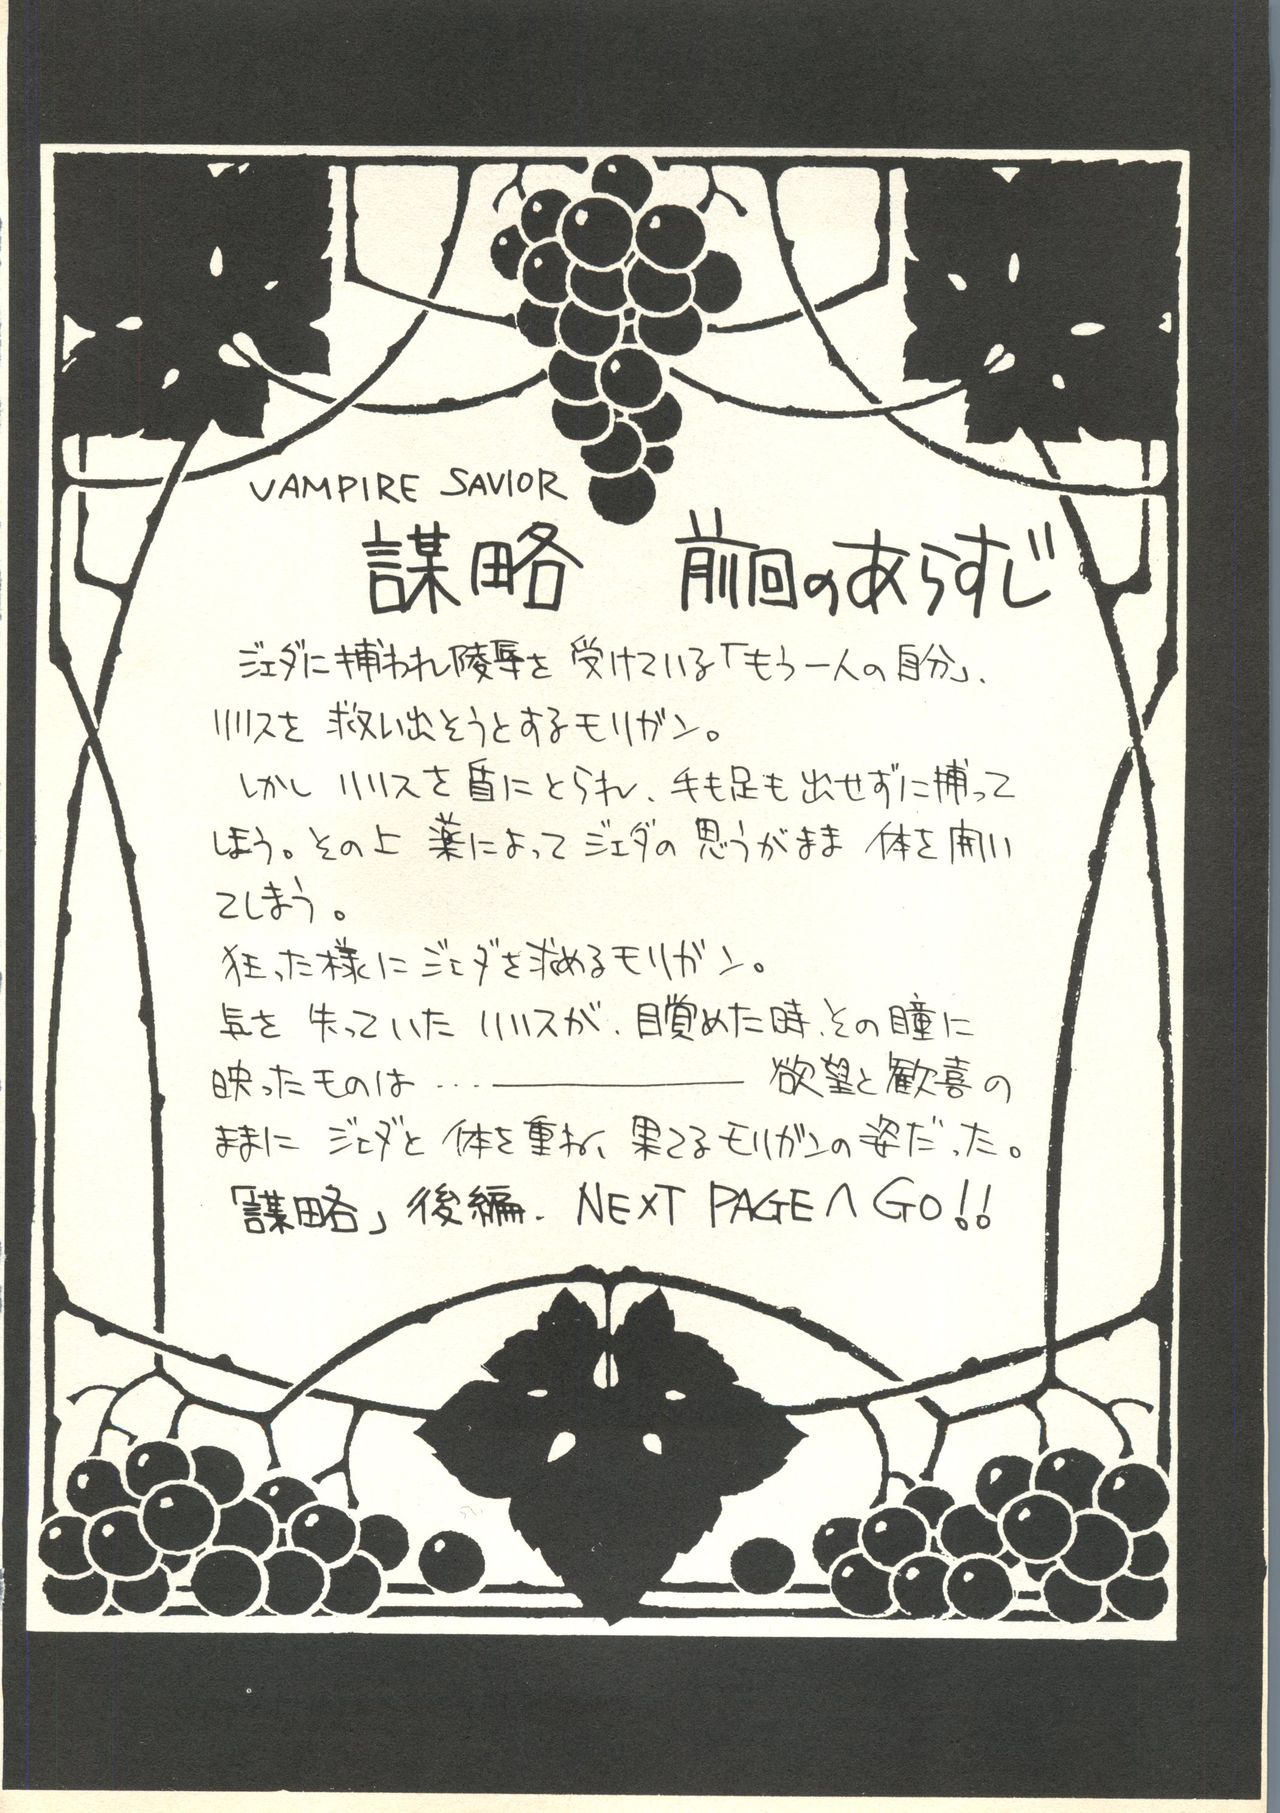 VAMPIRE SAVIOR
謀略 前回のあらすじ
ジェダに捕われ陵辱を受けている「もう一人の自分」、
リリスを救い出そうとするモリガン。
しかしリリスを盾にとられ、手も足も出せずに捕って
しまう。その上薬によってジェダの思うがまま体を開い
てしまう。
狂った様にジェダを求めるモリガン。
気を失っていたリリスが、目覚めた時、その瞳に
映ったものは‥‥―――――欲望と歓喜の
ままにジェダと体を重ね、果てるモリガンの姿だった。
「謀略」後編、NEXT PAGEへGO!!